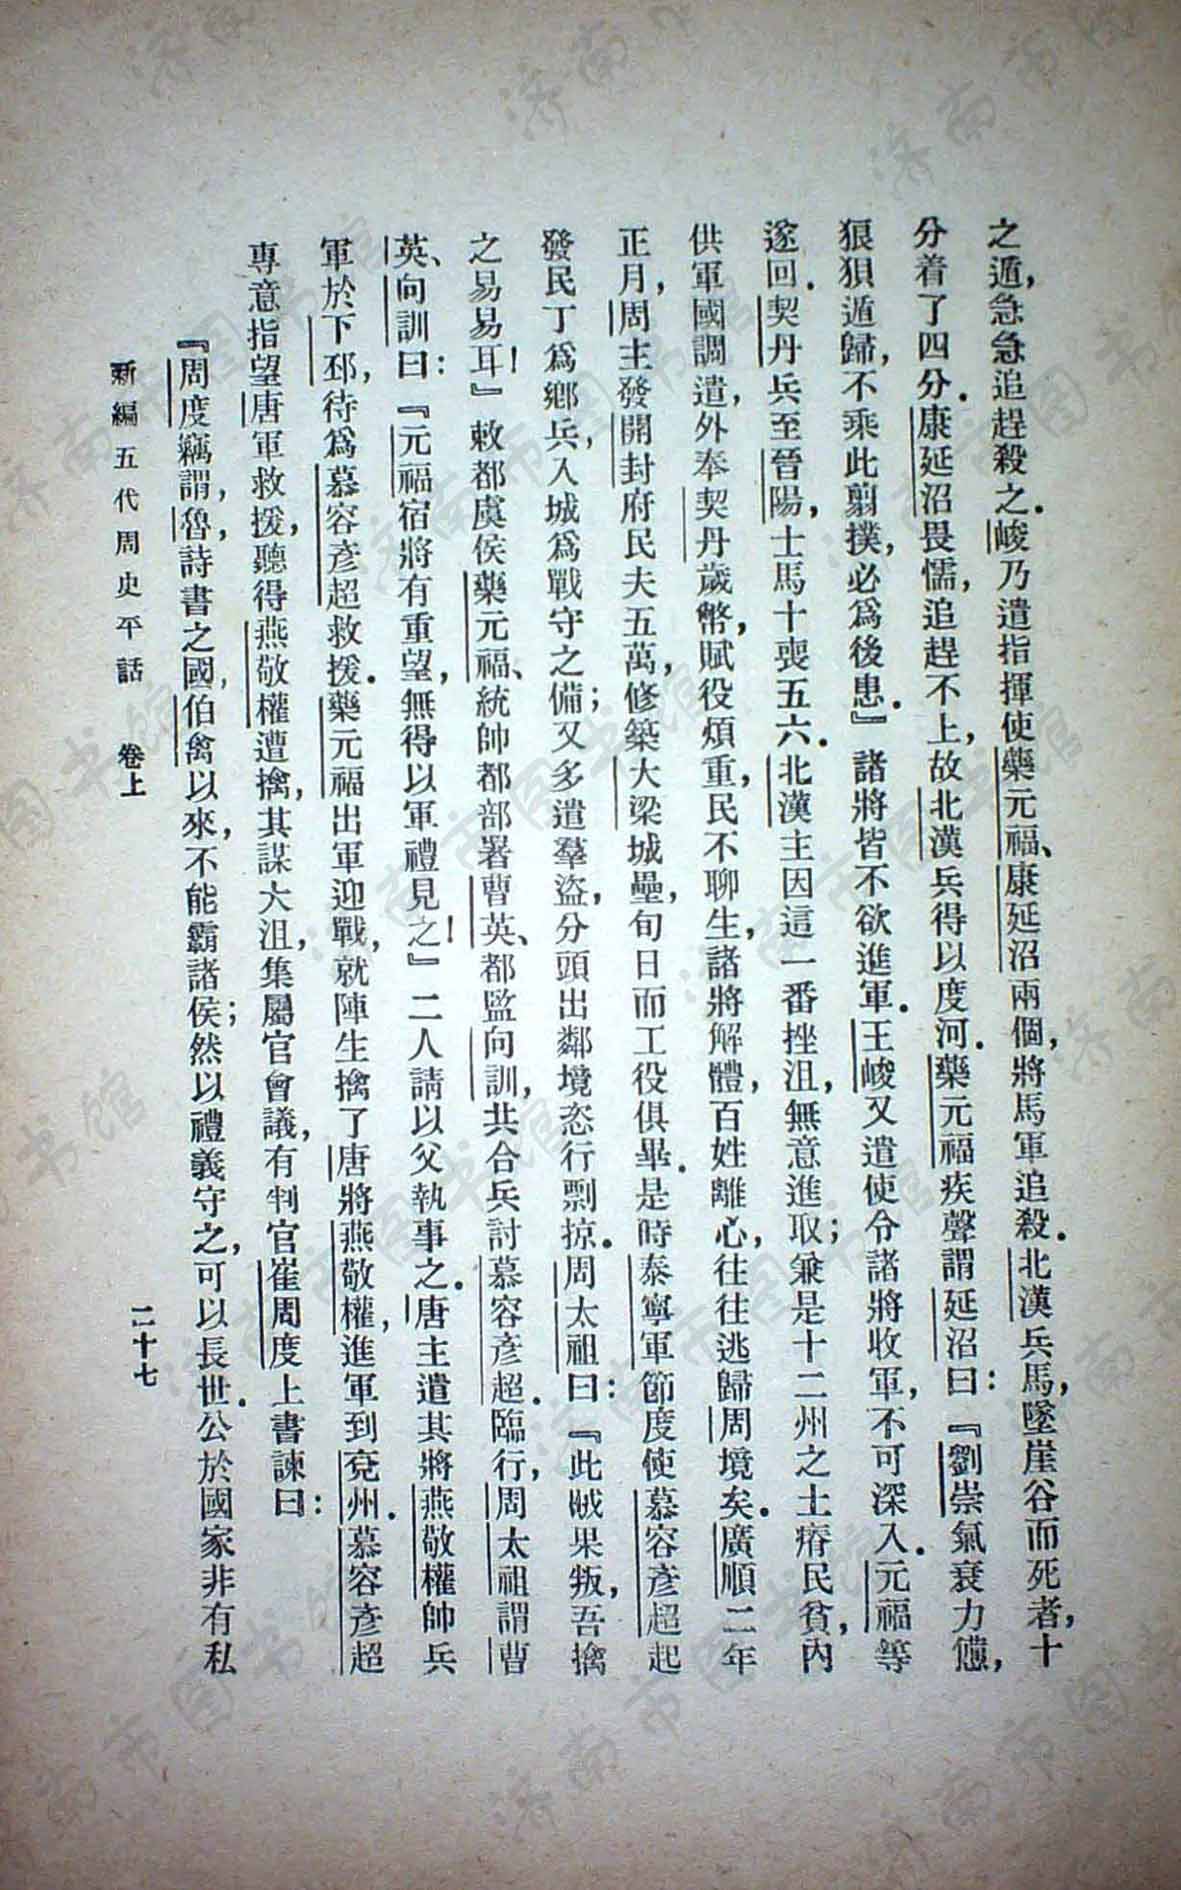 之遁，急急追趕殺之．峻乃遣指揮使藥元福、康延沼兩個，將馬軍追殺．北漢兵馬，墜崖谷而死者，十
分着了四分．康延沼畏懦，追趕不上，故北漢兵得以度河．藥元福疾聲謂延沼曰：『劉崇氣衰力憊，
狼狽遁歸，不乘此翦撲，必爲後患．』諸將皆不欲進軍．王峻又遣使令諸將收軍，不可深入．元福等
遂回．契丹兵至晉陽，士馬十喪五六．北漢主因這一番挫沮，無意進取；兼是十二州之土瘠民貧，內
供軍國調遣，外奉契丹歲幣，賦役煩重，民不聊生，諸將解體，百姓離心，往往逃歸周境矣．廣順二年
正月，周主發開封府民夫五萬，修築大梁城壘，旬日而工役俱畢．是時泰寧軍節度使慕容彥超起
發民丁爲鄉兵，入城爲戰守之備；又多遣羣盜，分頭出鄰境恣行剽掠．周太祖曰：『此賊果叛，吾擒
之易易耳！』敕都虞侯藥元福、統帥都部署曹英、都監向訓，共合兵討慕容彥超．臨行，周太祖謂曹
英、向訓曰：『元福宿將有重望，無得以軍禮見之！』二人請以父執事之．唐主遣其將燕敬權帥兵
軍於下邳，待爲慕容彥超救援．藥元福出軍迎戰，就陣生擒了唐將燕敬權，進軍到兗州．慕容彥超
專意指望唐軍救援，聽得燕敬權遭擒，其謀大沮，集屬官會議，有判官崔周度上書諫曰：
『周度竊謂，魯，詩書之國，伯禽以來，不能霸諸侯；然以禮義守之，可以長世．公於國家非有私
新編五代周史平話　卷上　二十七
济南市图书馆